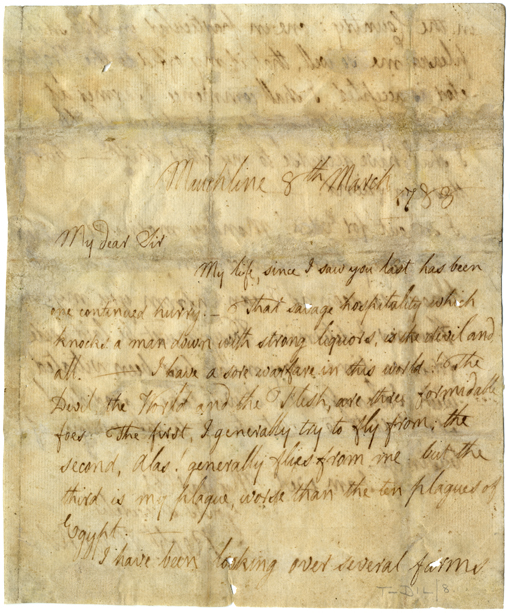 Mauchline 8th March
1788
My dear Sir
My life, since I saw you last has been
one continued hurry. — that savage hospitality which
knocks a man down with strong liquors, is the devil and
all. I have a sore warfare in this world! the
Devil, the World and the Flesh, are three formidable
foes. The first, I generally try to fly from; the
second, Alas! generally flies from me but the
third is my plague, worse than the ten plagues of
Egypt.
I have been looking over several farms